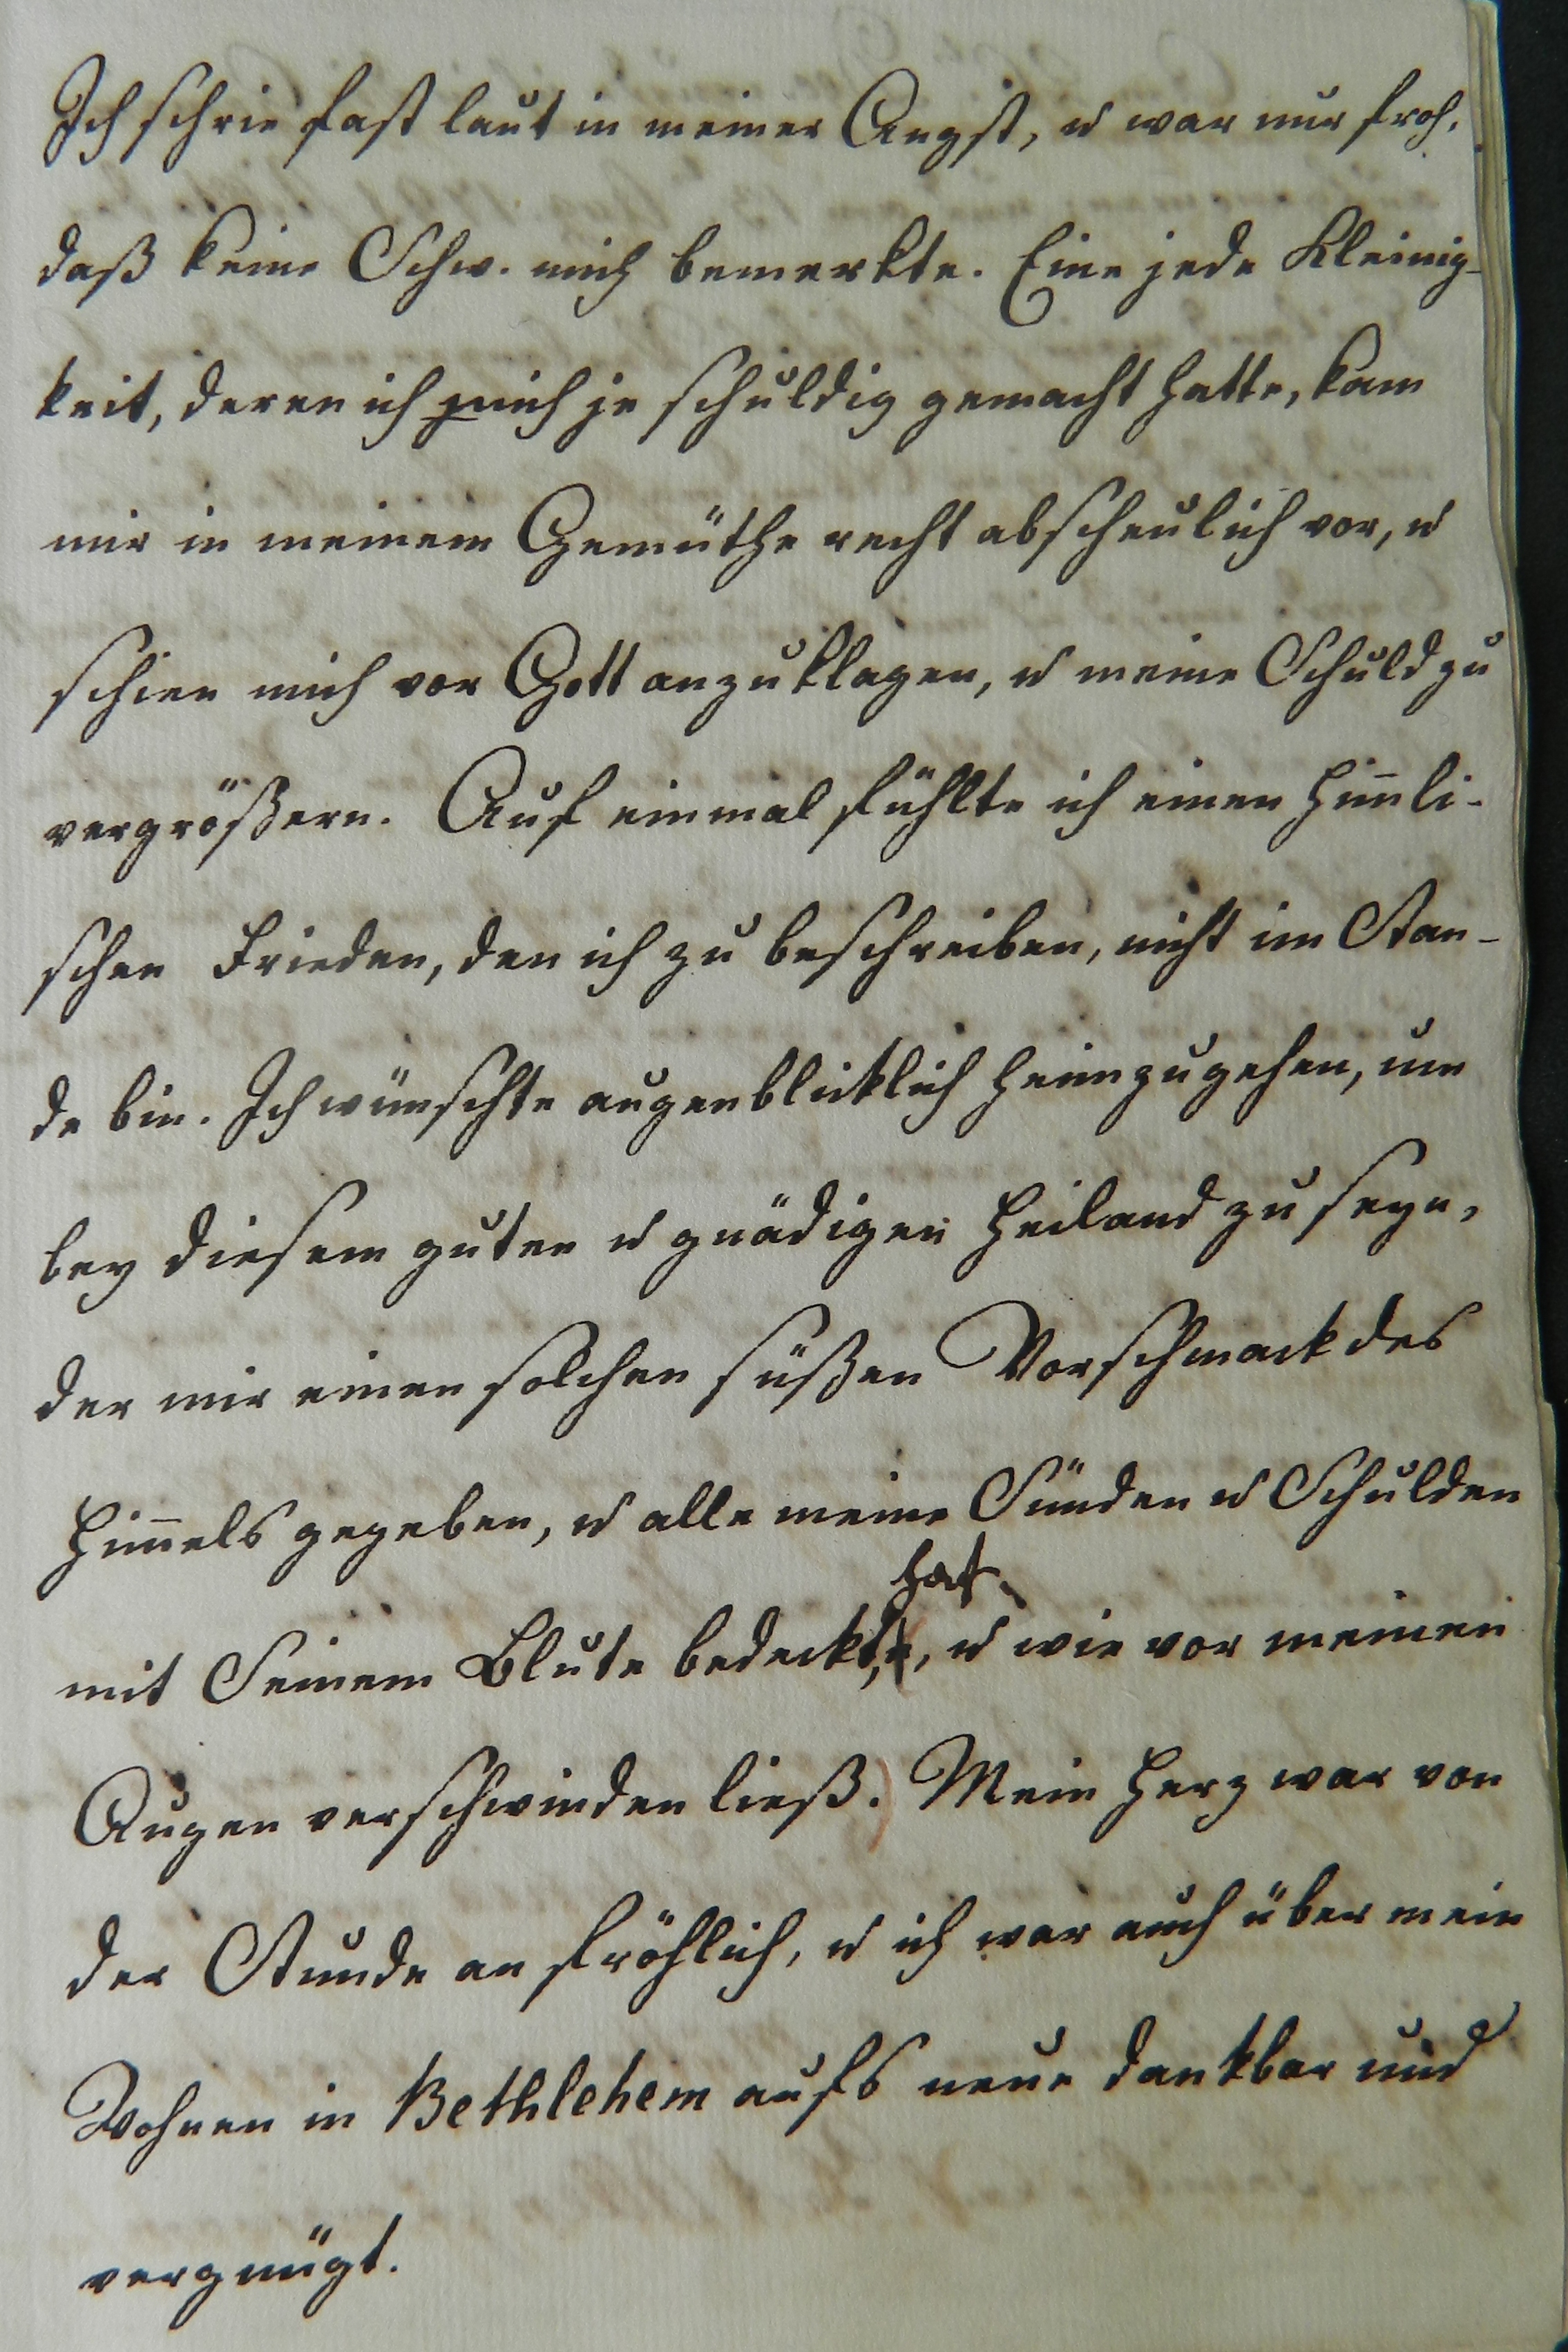 Ich schrie fast laut in meiner Angst, u war nur froh,
daß keine Schw. mich bemerkte. Eine jede Kleinig-
keit, deren ich mich je schuldig gemacht hatte, kam
mir in meinem Gemüthe recht abscheulich vor, u
schien mich vor Gott anzuklagen, u meine Schuld zu
vergrößern. Auf einmal fühlte ich einen him̅li-
schen Frieden, den ich zu beschreiben, nicht im Stan-
de bin. Ich wünschte augenblicklich heimzugehen, um
bey diesem guten u gnädigen Heiland zu seyn,
der mir einen solchen süßen Vorschmack des
Him̅els gegeben, u alle meine Sünden u Schulden
hat
mit Seinem Blute bedeckt, u wie vor meinen
Augen verschwinden ließ. Mein Herz war von
der Stunde an fröhlich, u ich war auch über mein
Wohnen in Bethlehem aufs neue dankbar und
vergnügt.